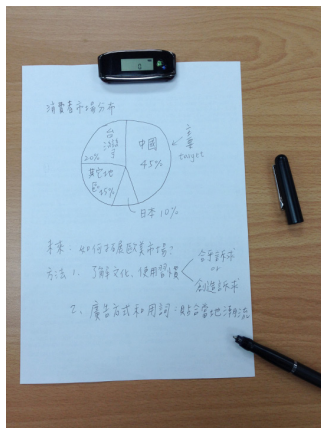 消費者市場分布
台灣
20%
中國
45%
主要
target
其它地
區
日本 10%
未來：如何拓展歐美市場？
方法 1. 了解文化、使用習慣
合乎訴求
or
創造訴求
2. 廣告方式和用詞：貼合當地潮流